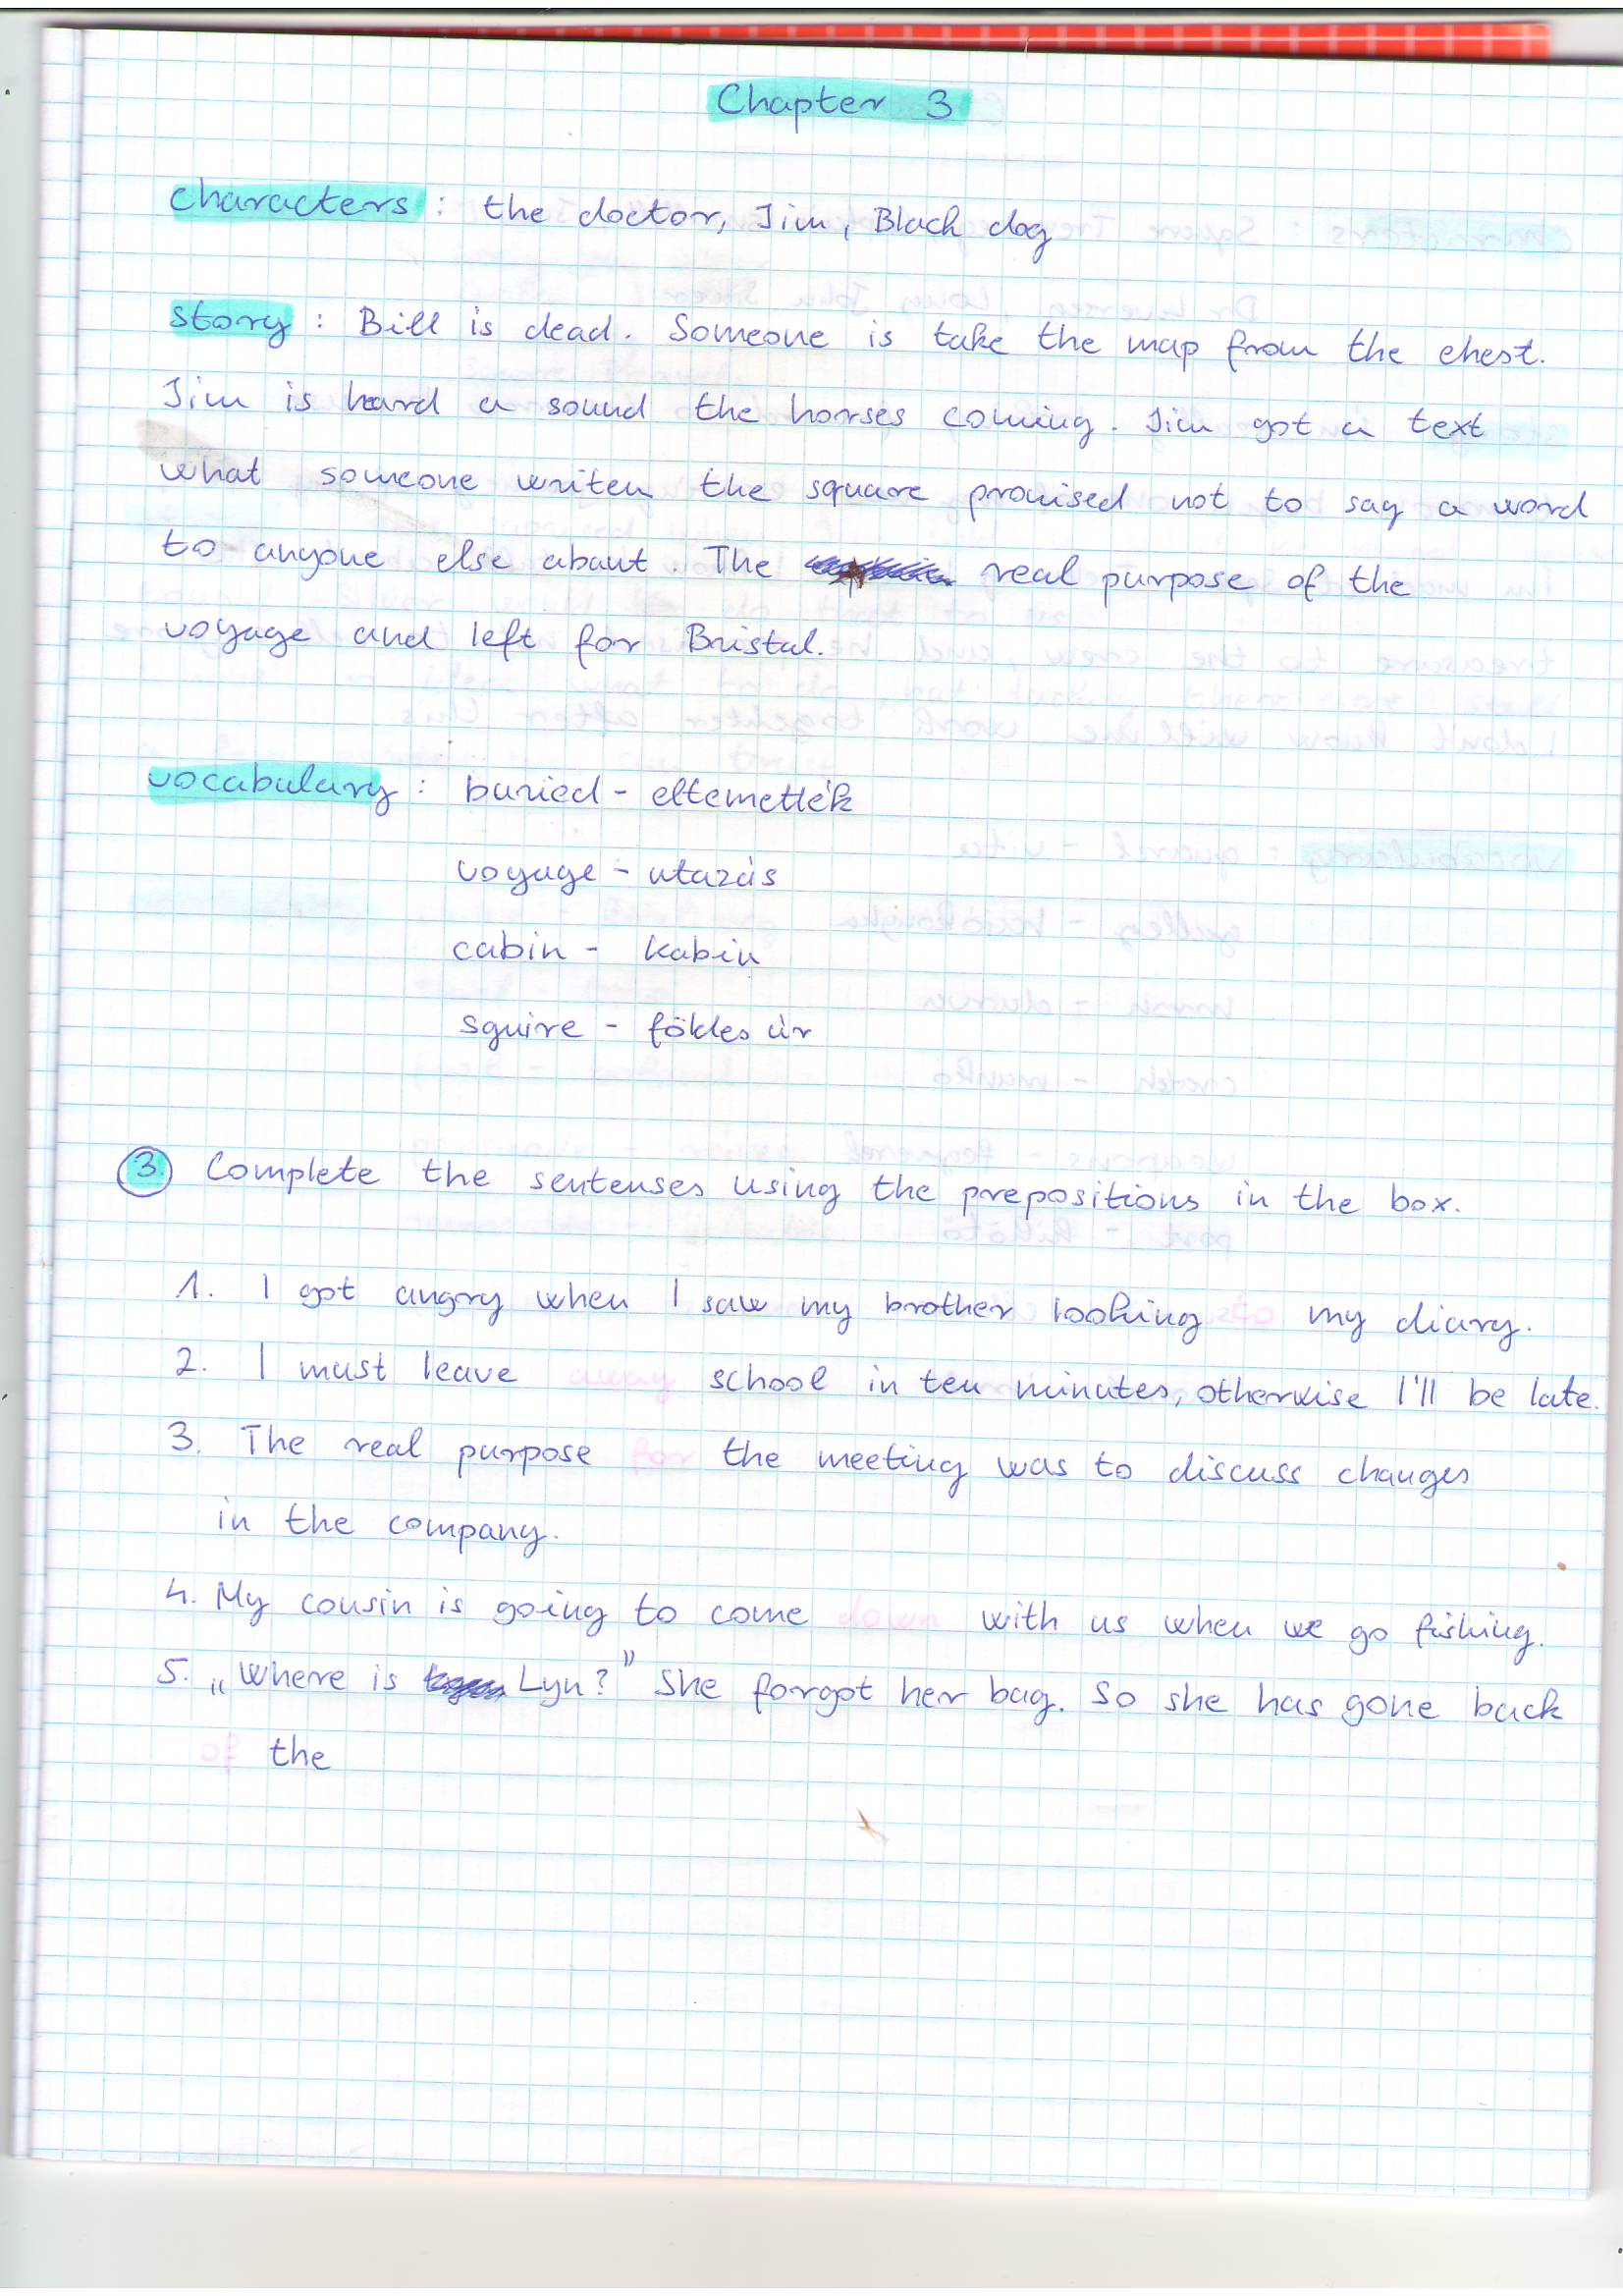 Chapter 3
Characters : the doctor, Jim, Black dog
story : Bill is dead. Someone is take the map from the chest.
Jim is heard a sound the horses coming. Jim got a text
what someone writen the square promised not to say a word
to anyone else abaut. The real purpose of the
voyage and left for Bristal.
vocabulary : buried - eltemették
voyage - utazás
cabin - kabin
squire - földes úr
3. Complete the sentenses using the prepositions in the box.
1. I got angry when I saw my brother looking to my diary.
2. I must leave away school in ten minutes, otherwise I'll be late.
3. The real purpose for the meeting was to discuss changes
in the company.
4. My cousin is going to come down with us when we go fishing.
5. „Where is Lyn?" She forgot her bag. So she has gone back
of the